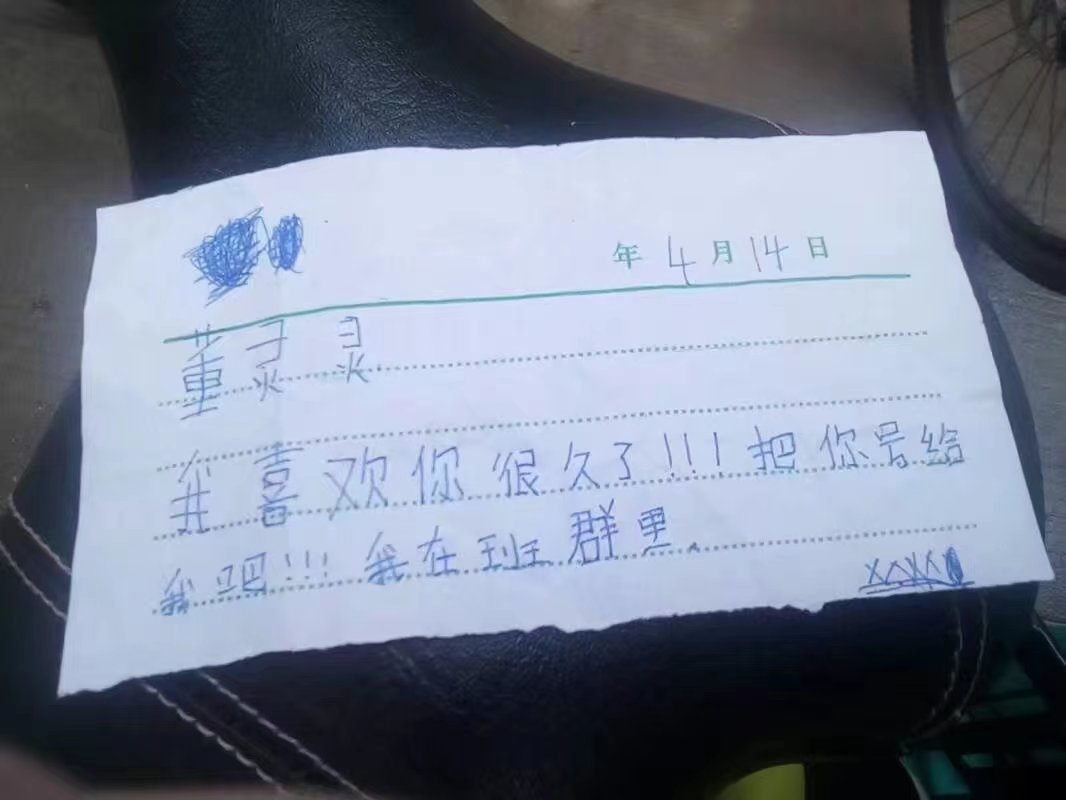 年 4 月 14 日
董灵灵
我喜欢你很久了!!!把你号给
我吧!!!我在班群里.